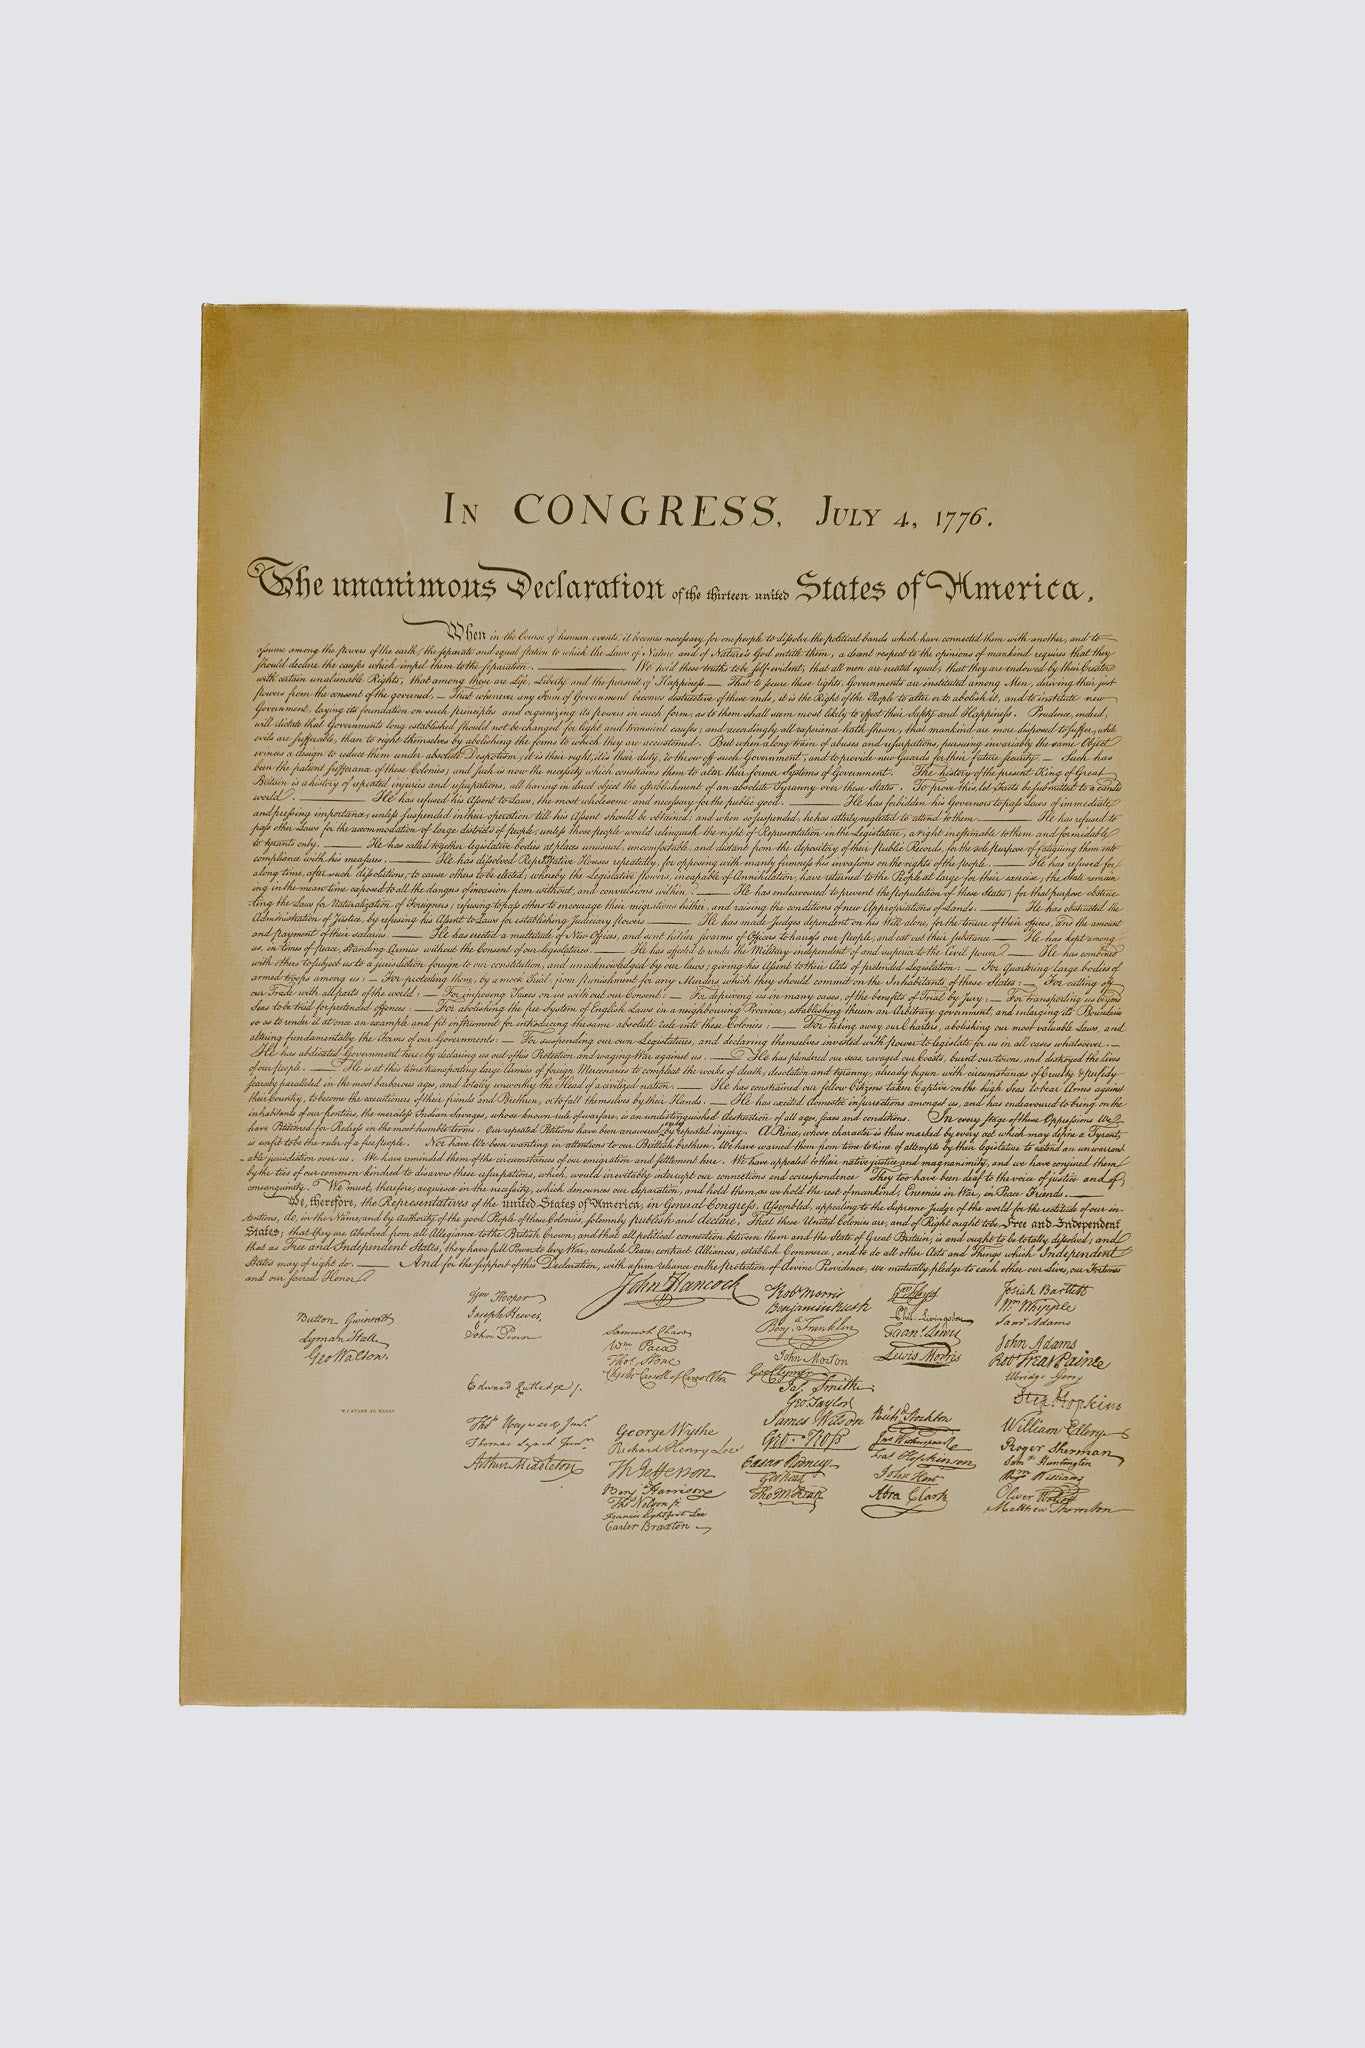 In CONGRESS, July 4, 1776.
The unanimous Declaration of the thirteen united States of America,
When in the Course of human events, it becomes necessary for one people to dissolve the political bands which have connected them with another, and to
assume among the powers of the earth, the separate and equal station to which the Laws of Nature and of Nature's God entitle them, a decent respect to the opinions of mankind requires that they
should declare the causes which impel them to the separation. — We hold these truths to be self-evident, that all men are created equal, that they are endowed by their Creator
with certain unalienable Rights, that among these are Life, Liberty and the pursuit of Happiness — That to secure these rights, Governments are instituted among Men, deriving their just
powers from the consent of the governed, — That whenever any Form of Government becomes destructive of these ends, it is the Right of the People to alter or to abolish it, and to institute new
Government, laying its foundation on such principles and organizing its powers in such form, as to them shall seem most likely to effect their Safety and Happiness. Prudence, indeed,
will dictate that Governments long established should not be changed for light and transient causes; and accordingly all experience hath shewn, that mankind are more disposed to suffer, while
evils are sufferable, than to right themselves by abolishing the forms to which they are accustomed. But when a long train of abuses and usurpations, pursuing invariably the same Object
evinces a design to reduce them under absolute Despotism, it is their right, it is their duty, to throw off such Government, and to provide new Guards for their future security. — Such has
been the patient sufferance of these Colonies; and such is now the necessity which constrains them to alter their former Systems of Government. The history of the present King of Great
Britain is a history of repeated injuries and usurpations, all having in direct object the establishment of an absolute Tyranny over these States. To prove this, let Facts be submitted to a candid
world. — He has refused his Assent to Laws, the most wholesome and necessary for the public good. — He has forbidden his Governors to pass Laws of immediate
and pressing importance, unless suspended in their operation till his Assent should be obtained; and when so suspended, he has utterly neglected to attend to them. — He has refused to
pass other Laws for the accommodation of large districts of people, unless those people would relinquish the right of Representation in the Legislature, a right inestimable to them and formidable
to tyrants only. — He has called together legislative bodies at places unusual, uncomfortable, and distant from the depository of their Public Records, for the sole purpose of fatiguing them into
compliance with his measures. — He has dissolved Representative Houses repeatedly, for opposing with manly firmness his invasions on the rights of the people. — He has refused for
a long time, after such dissolutions, to cause others to be elected; whereby the Legislative powers, incapable of Annihilation, have returned to the People at large for their exercise; the State remain
ing in the mean time exposed to all the dangers of invasion from without, and convulsions within. — He has endeavoured to prevent the population of these States; for that purpose obstruc
ting the Laws for Naturalization of Foreigners; refusing to pass others to encourage their migrations hither, and raising the conditions of new Appropriations of Lands. — He has obstructed the
Administration of Justice, by refusing his Assent to Laws for establishing Judiciary powers — He has made Judges dependent on his Will alone, for the tenure of their offices, and the amount
and payment of their salaries. — He has erected a multitude of New Offices, and sent hither swarms of Officers to harass our people, and eat out their substance — He has kept among
us, in times of peace, Standing Armies without the Consent of our legislatures. — He has affected to render the Military independent of and superior to the Civil power — He has combined
with others to subject us to a jurisdiction foreign to our constitution, and unacknowledged by our laws; giving his Assent to their Acts of pretended Legislation: — For Quartering large bodies of
armed troops among us: — For protecting them, by a mock Trial, from punishment for any Murders which they should commit on the Inhabitants of these States: — For cutting off
our Trade with all parts of the world: — For imposing Taxes on us without our Consent: — For depriving us in many cases, of the benefits of Trial by Jury: — For transporting us beyond
Seas to be tried for pretended offences: — For abolishing the free System of English Laws in a neighbouring Province, establishing therein an Arbitrary government, and enlarging its Boundaries
so as to render it at once an example and fit instrument for introducing the same absolute rule into these Colonies: — For taking away our Charters, abolishing our most valuable Laws, and
altering fundamentally the Forms of our Governments: — For suspending our own Legislatures, and declaring themselves invested with power to legislate for us in all cases whatsoever. —
He has abdicated Government here, by declaring us out of his Protection and waging War against us. — He has plundered our seas, ravaged our Coasts, burnt our towns, and destroyed the lives
of our people. — He is at this time transporting large Armies of foreign Mercenaries to compleat the works of death, desolation and tyranny, already begun with circumstances of Cruelty & perfidy
scarcely paralleled in the most barbarous ages, and totally unworthy the Head of a civilized nation. — He has constrained our fellow Citizens taken Captive on the high Seas to bear Arms against
their Country, to become the executioners of their friends and Brethren, or to fall themselves by their Hands. — He has excited domestic insurrections amongst us, and has endeavoured to bring on the
inhabitants of our frontiers, the merciless Indian Savages, whose known rule of warfare, is an undistinguished destruction of all ages, sexes and conditions. In every stage of these Oppressions We
have Petitioned for Redress in the most humble terms: Our repeated Petitions have been answered only by repeated injury. A Prince, whose character is thus marked by every act which may define a Tyrant,
is unfit to be the ruler of a free people. Nor have We been wanting in attentions to our Brittish brethren. We have warned them from time to time of attempts by their legislature to extend an unwarrant
able jurisdiction over us. We have reminded them of the circumstances of our emigration and settlement here. We have appealed to their native justice and magnanimity, and we have conjured them
by the ties of our common kindred to disavow these usurpations, which, would inevitably interrupt our connections and correspondence They too have been deaf to the voice of justice and of
consanguinity. We must, therefore, acquiesce in the necessity, which denounces our Separation, and hold them, as we hold the rest of mankind, Enemies in War, in Peace Friends. —
We, therefore, the Representatives of the united States of America, in General Congress, Assembled, appealing to the Supreme Judge of the world for the rectitude of our in-
tentions, do, in the Name, and by Authority of the good People of these Colonies, solemnly publish and declare, That these United Colonies are, and of Right ought to be Free and Independent
States; that they are Absolved from all Allegiance to the British Crown, and that all political connection between them and the State of Great Britain, is and ought to be totally dissolved; and
that as Free and Independent States, they have full Power to levy War, conclude Peace, contract Alliances, establish Commerce, and to do all other Acts and Things which Independent
States may of right do. — And for the support of this Declaration, with a firm reliance on the protection of divine Providence, we mutually pledge to each other our Lives, our Fortunes
and our sacred Honor.
Button Gwinnett
Lyman Hall
Geo Walton.
W. J. STONE SC. WASHN
Wm Hooper
Joseph Hewes,
John Penn
Edward Rutledge /.
Thos Heyward Junr.
Thomas Lynch Junr.
Arthur Middleton
John Hancock
Samuel Chase
Wm Paca
Thos Stone
Charles Carroll of Carrollton
George Wythe
Richard Henry Lee
Th Jefferson
Benj Harrison
Thos Nelson jr.
Francis Lightfoot Lee
Carter Braxton
Robt Morris
Benjamin Rush
Benj. Franklin
John Morton
Geo Clymer
Jas. Smith
Geo Taylor
James Wilson
Geo. Ross
Caesar Rodney
Geo Read
Tho M:Kean
Wm Floyd
Phil. Livingston
Frans. Lewis
Lewis Morris
Richd. Stockton
Jno Witherspoon
Fras. Hopkinson
John Hart
Abra Clark
Josiah Bartlett
Wm Whipple
Saml Adams
John Adams
Robt Treat Paine
Elbridge Gerry
Step. Hopkins
William Ellery
Roger Sherman
Saml Huntington
Wm Williams
Oliver Wolcott
Matthew Thornton